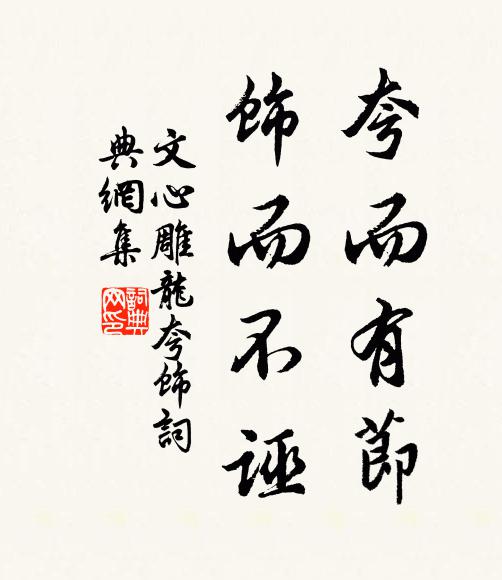 夸而有節
飾而不誣
文心雕龍夸飾詞
典網集
詞典
网印